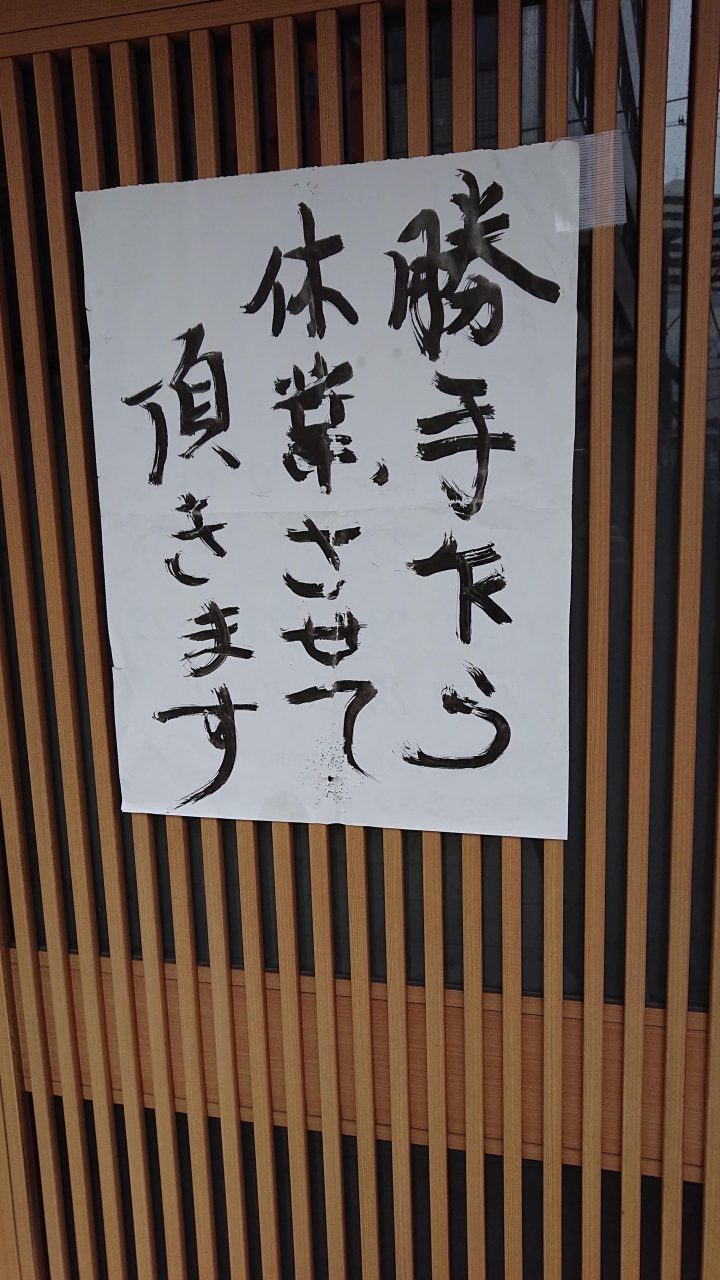 勝手乍ら
休業、させて
頂きます